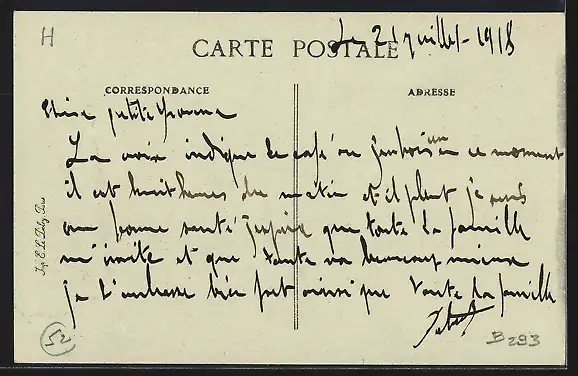 H
Le 21 juillet 1918
CARTE POSTALE
CORRESPONDANCE
ADRESSE
Chère petite Yvonne
La croix indique le café ou j'en bois un en ce moment
il est huit heures du matin et il pleut je suis
en bonne santé j'espère que toute la famille
m'imite et que tante va beaucoup mieux
je t'embrasse bien fort ainsi que toute la famille
Imp. E. Le Deley, Paris
52
B293